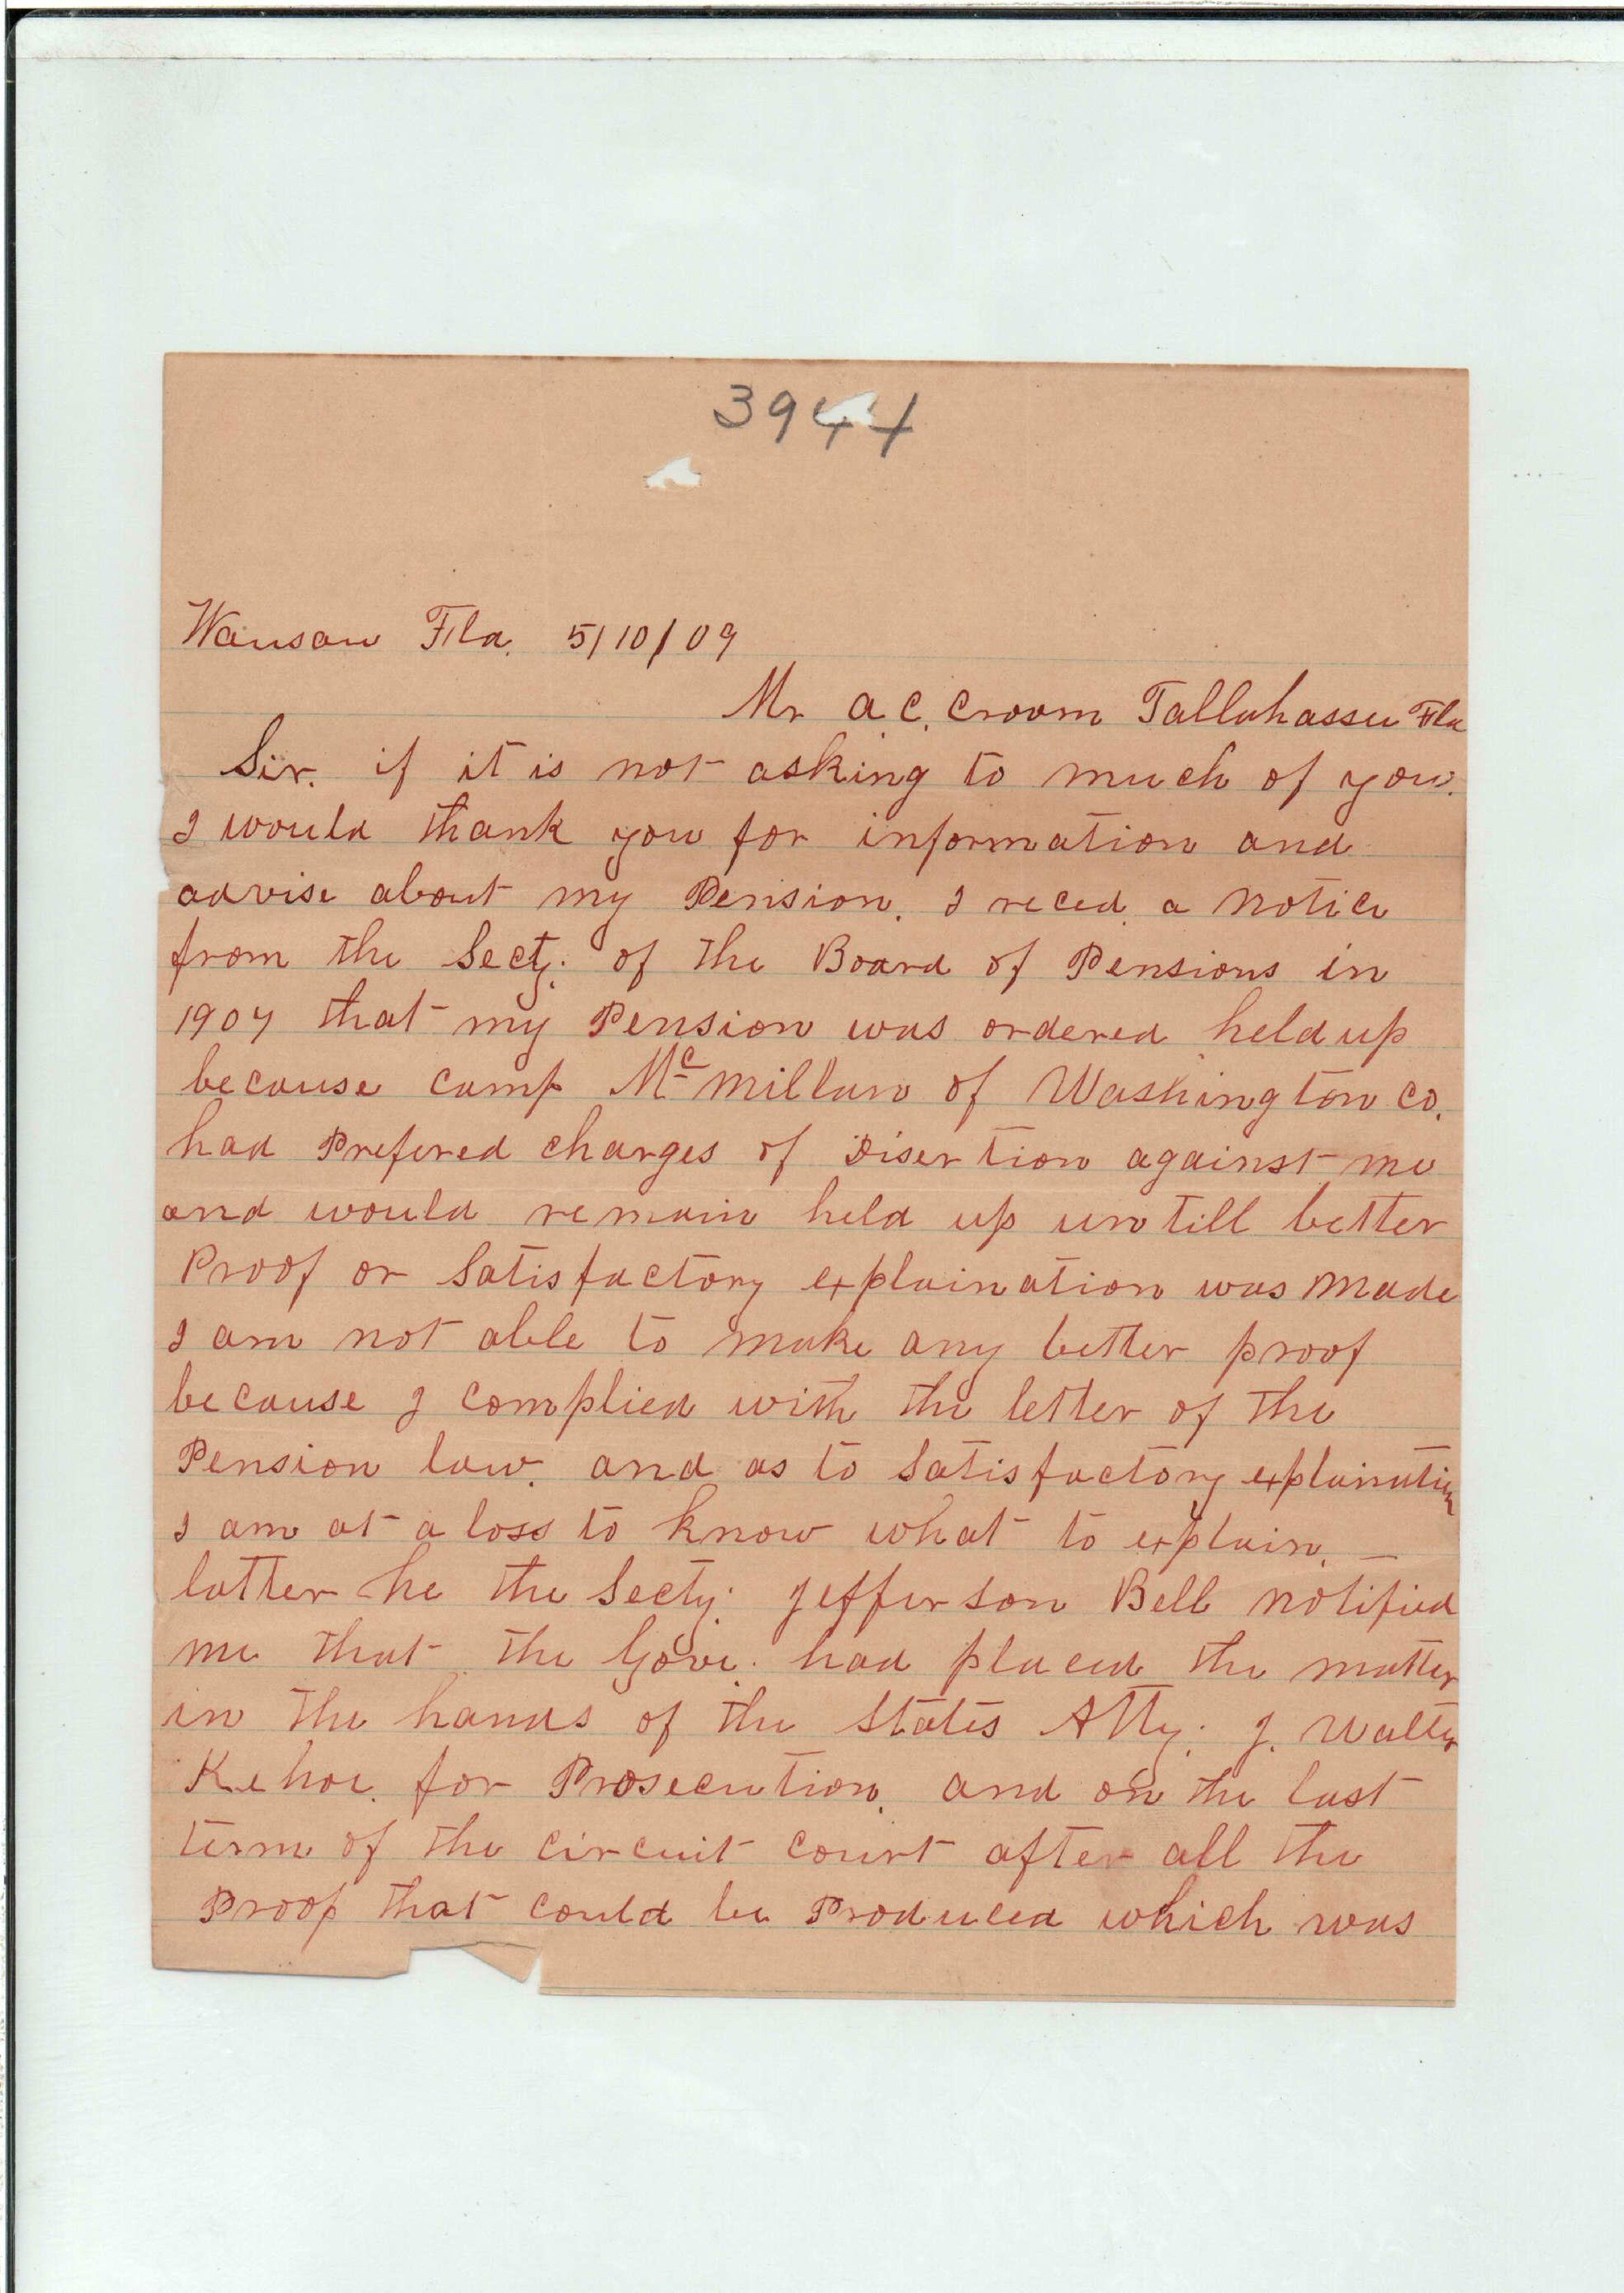 3944
Wausau Fla. 5/10/09
Mr A.C. Croom Tallahassee Fla
Sir. if it is not asking to much of you.
I would thank you for information and
advise about my Pension. I reced a notice
from the Secty. of the Board of Pensions in
1907 that my Pension was ordered held up
because camp McMillan of Washington Co.
had Prefered charges of Disertion against me
and would remain held up untill better
Proof or Satisfactory explaination was Made
I am not able to make any better proof
because I complied with the letter of the
Pension law. and as to Satisfactory explaination
I am at a loss to know what to explain. —
latter he the Secty. Jefferson Bell notified
me that the Gove. had placed the matter
in the hands of the States Atty. J. Walter
Kehoe. for Prosecution. and on the last
term of the circuit court after all the
Proof that could be Produced which was